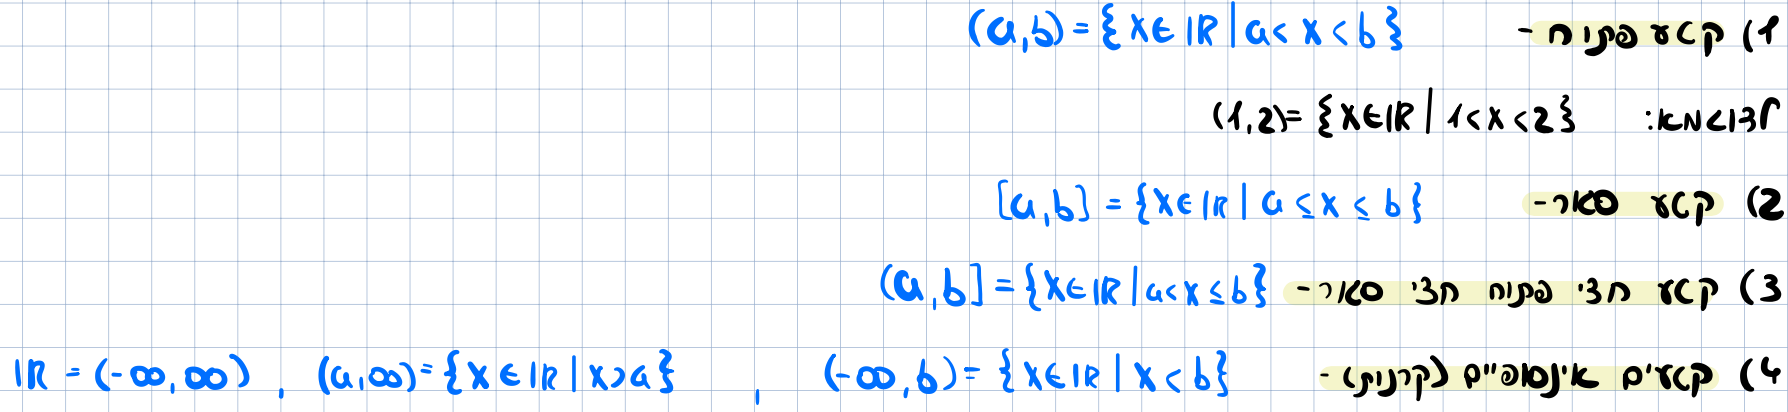 1) קטע פתוח - (a,b) = {x∈ℝ | a < x < b}
לדוגמא: (1,2) = {x∈ℝ | 1 < x < 2}
2) קטע סגור - [a,b] = {x∈ℝ | a ≤ x ≤ b}
3) קטע חצי פתוח חצי סגור - (a,b] = {x∈ℝ | a < x ≤ b}
4) קטעים אינסופיים (קרנות) - (-∞,b) = {x∈ℝ | x < b} , (a,∞) = {x∈ℝ | x > a} , ℝ = (-∞,∞)